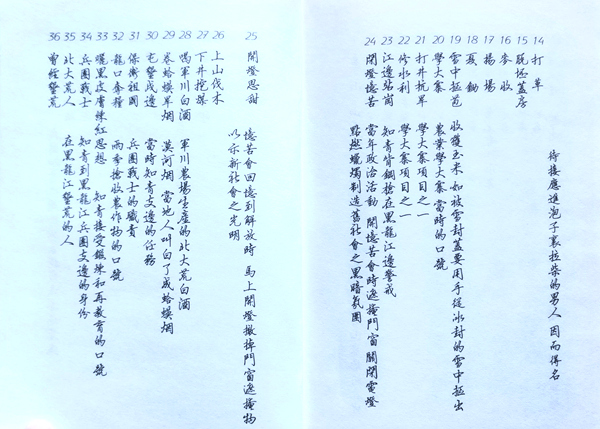 待接應進泡子裏拉柴的男人 因而得名
14 打草
15 脫坯蓋房
16 麥收
17 揚場
18 夏鋤
19 雪中苞 收獲玉米 如被雪封蓋要用手從冰封的雪中出
20 學大寨 農業學大寨 當時的口號
21 打井抗旱 學大寨項目之一
22 修水利 學大寨項目之一
23 江邊站崗 知青背鋼槍在黑龍江邊警戒
24 閉燈憶苦 當年政治活動 開憶苦會時遮掩門窗 關閉電燈
點燃蠟燭制造舊社會之黑暗氛圍
25 開燈思甜 憶苦會回憶到解放時 馬上開燈撤掉門窗遮掩物
以示新社會之光明
26 上山伐木
27 下井挖煤
28 喝軍川白酒 軍川農場生產的北大荒白酒
29 卷蛤蟆烟 莫河烟 當地人叫白了成蛤蟆烟
30 屯墾戍邊 當時知青支邊的任務
31 保衛祖國 兵團戰士的職責
32 龍口奪糧 雨季搶收農作物的口號
33 曬黑皮膚煉紅思想 知青接受鍛煉和再教育的口號
34 兵團戰士 知青到黑龍江兵團支邊的身份
35 北大荒人 在黑龍江墾荒的人
36 曾經墾荒